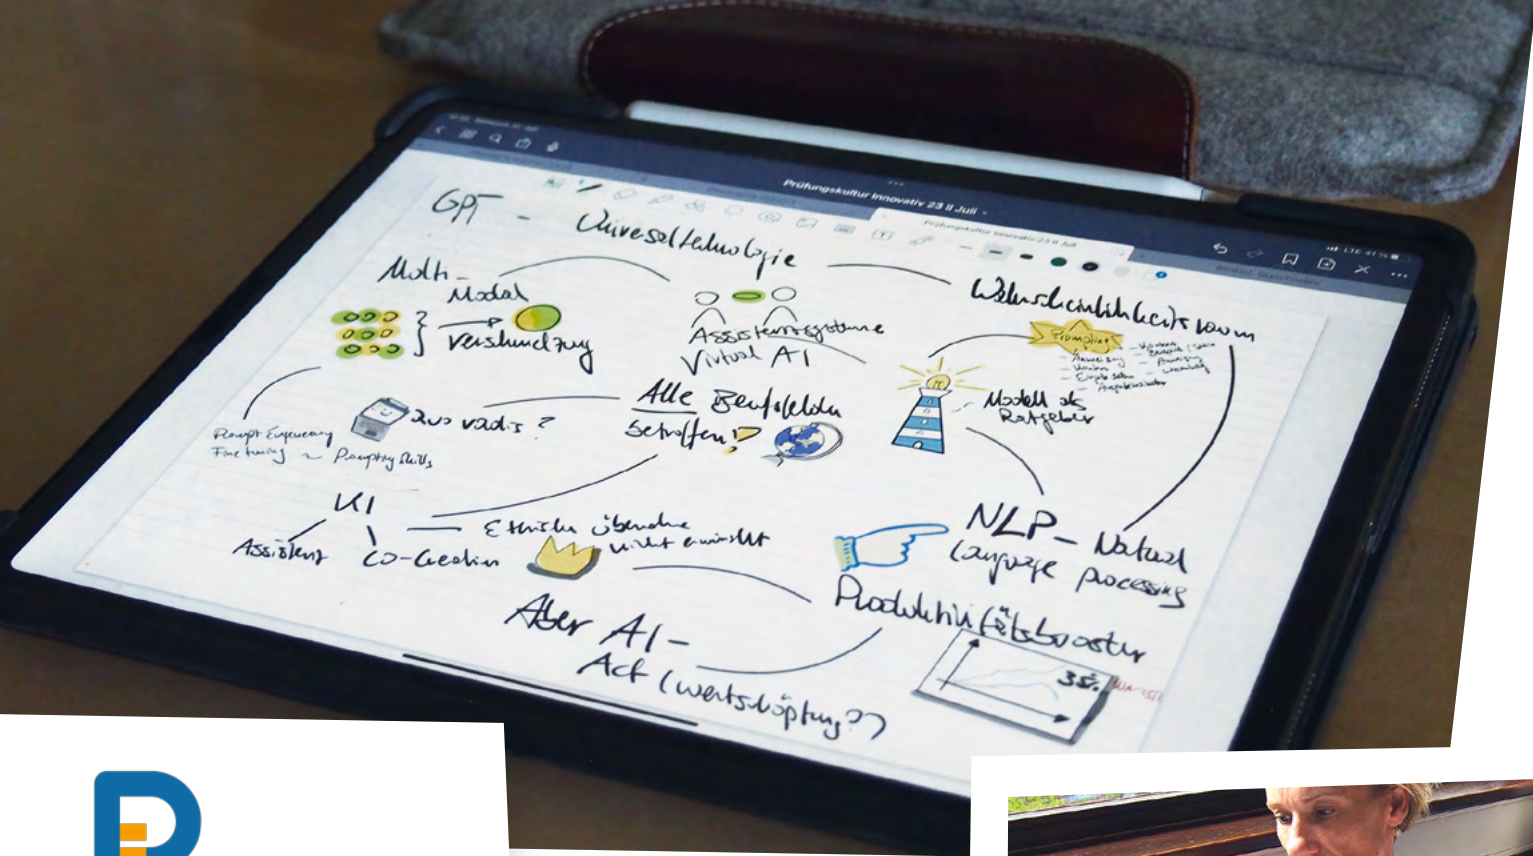 Prüfungskultur Innovativ 23 II Juli
Prüfungskultur Innovativ 23 II Juli
LTE 41%
GPT - Universaltechnologie
Multi-
Modal
Verschmelzung
Assistenzsysteme
Virtual AI
Wahrscheinlichkeitsraum
Prompting
Modell als
Ratgeber
Alle Berufsfelder
betroffen!
Quo vadis?
Prompt Engineering
Fine tuning ~ Prompting Skills
KI
Assistenz
Co-Creation
Ethische Übernahme
nicht erwünscht
NLP - Natural
Language processing
Produktivitätsbooster
35%
Aber AI -
Act (Wertschöpfung??)